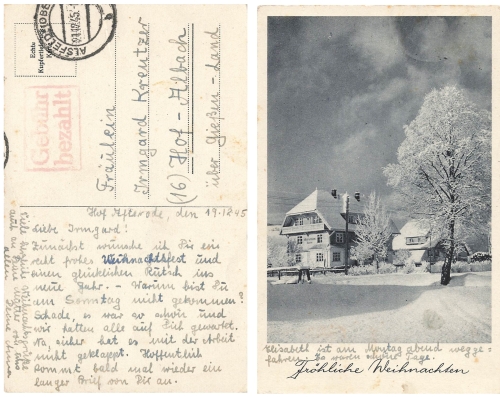 Echte
ALSFELD (OBER
19.12.45
Gebühr
bezahlt
Fräulein
Irmgard Kreutzer
(16) Hof-Albach
über Gießen-Land
Hof Afterode, den 19.12.45
Liebe Irmgard!
Zunächst wünsche ich Dir ein
recht frohes Weihnachtsfest und
einen glücklichen Rutsch ins
neue Jahr. - Warum bist Du
am Sonntag nicht gekommen?
Schade, es war so schön und
wir hatten alle auf Dich gewartet.
Na, sicher hat es mit der Arbeit
nicht geklappt. Hoffentlich
kommt bald mal wieder ein
langer Brief von Dir an.
Viele herzliche Weihnachtsgrüße
auch an Deine
allen Deine Anna
Elisabeth ist am Montag abend wegge-
fahren. Es waren schöne Tage.
Fröhliche Weihnachten